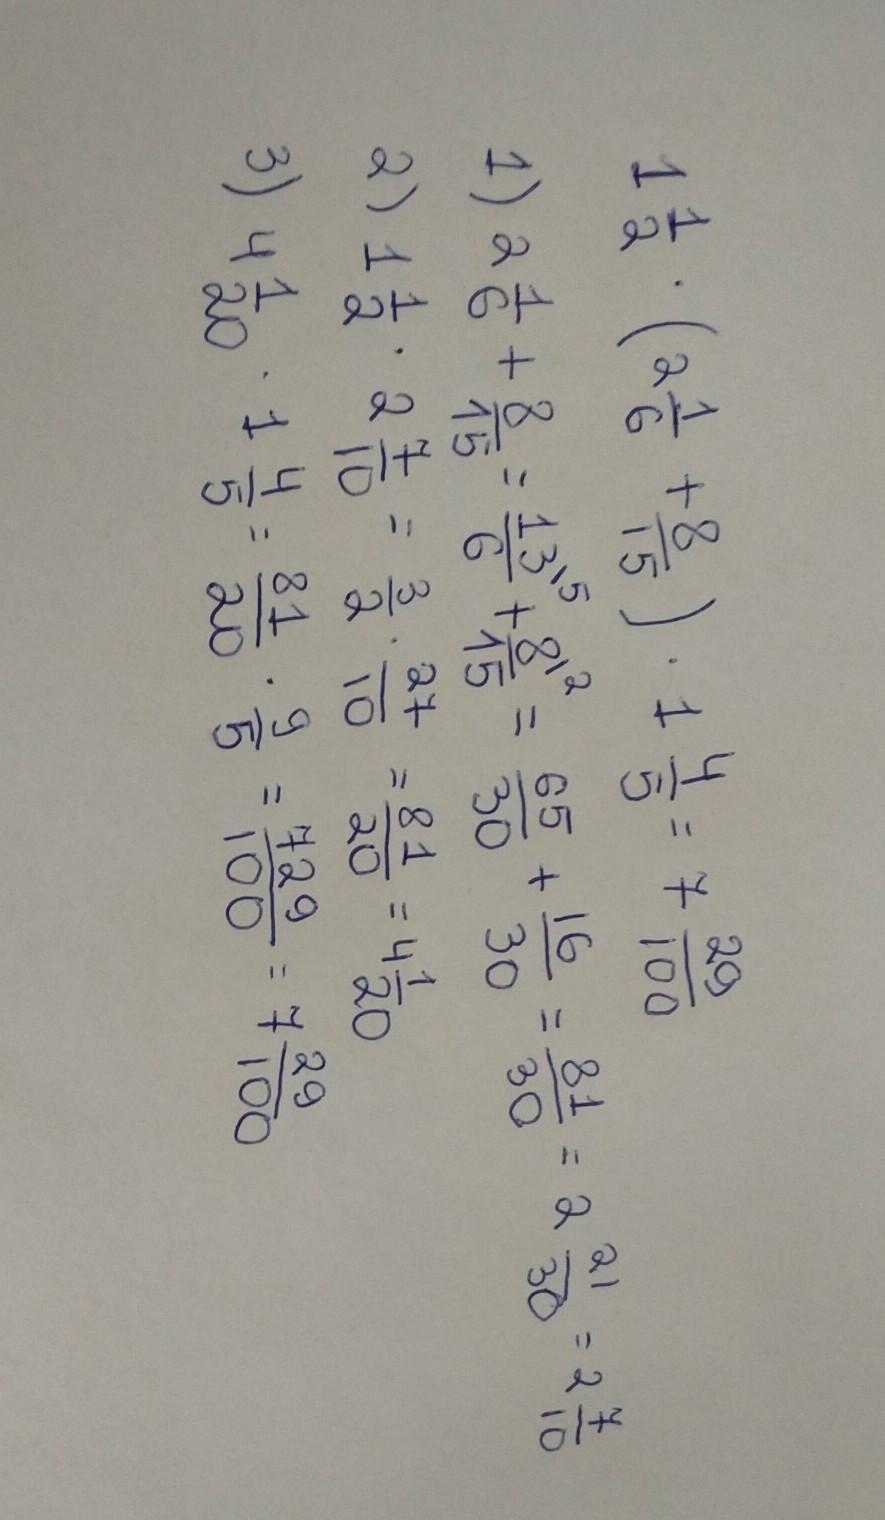 1 1/2 · (2 1/6 + 8/15) · 1 4/5 = 7 29/100
1) 2 1/6 + 8/15 = 13\5/6 + 8\2/15 = 65/30 + 16/30 = 81/30 = 2 21/30 = 2 7/10
2) 1 1/2 · 2 7/10 = 3/2 · 27/10 = 81/20 = 4 1/20
3) 4 1/20 · 1 4/5 = 81/20 · 9/5 = 729/100 = 7 29/100